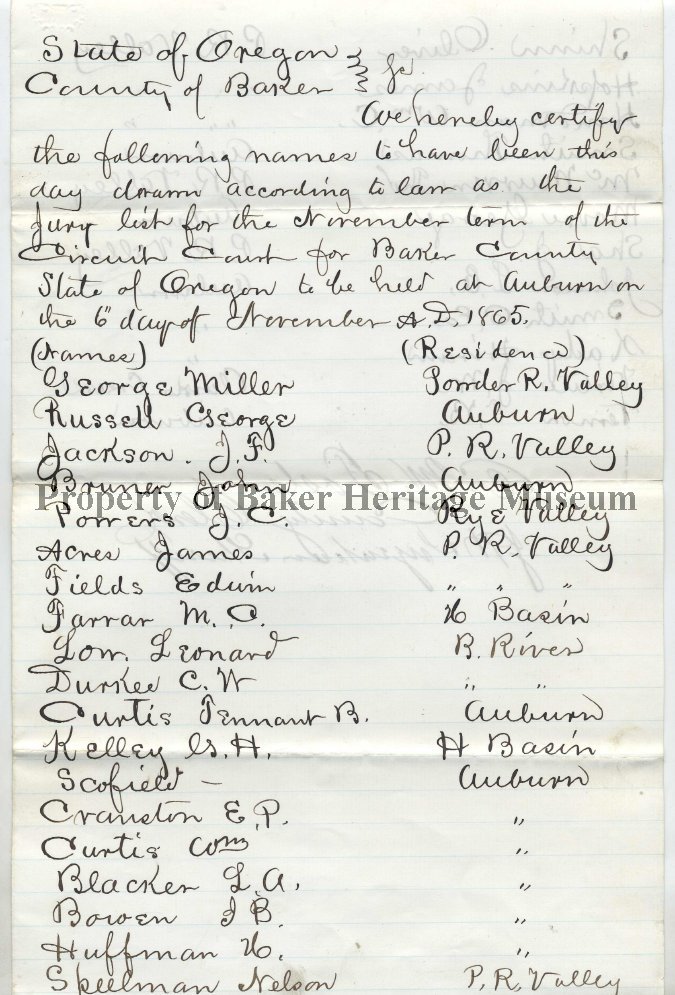 State of Oregon
County of Baker
We hereby certify
the following names to have been this
day drawn according to law as the
Jury list for the November term of the
Circuit Court for Baker County
State of Oregon to be held at Auburn on
the 6" day of November A.D. 1865.
(Names) (Residence)
George Miller Powder R. Valley
Russell George Auburn
Jackson. J. F. P. R. Valley
Bruner John Auburn
Property of Baker Heritage Museum
Powers J. C. Rye Valley
Acres James P. R. Valley
Fields Edwin " " "
Farrar M. C. H Basin
Low. Leonard B. River
Durkee C. W " "
Curtis Tennant B. Auburn
Kelley G. H. H Basin
Scofield — Auburn
Cranston E. P. "
Curtis Wm "
Blacker L. A. "
Bowen J B. "
Huffman H. "
Speelman Nelson P. R. Valley